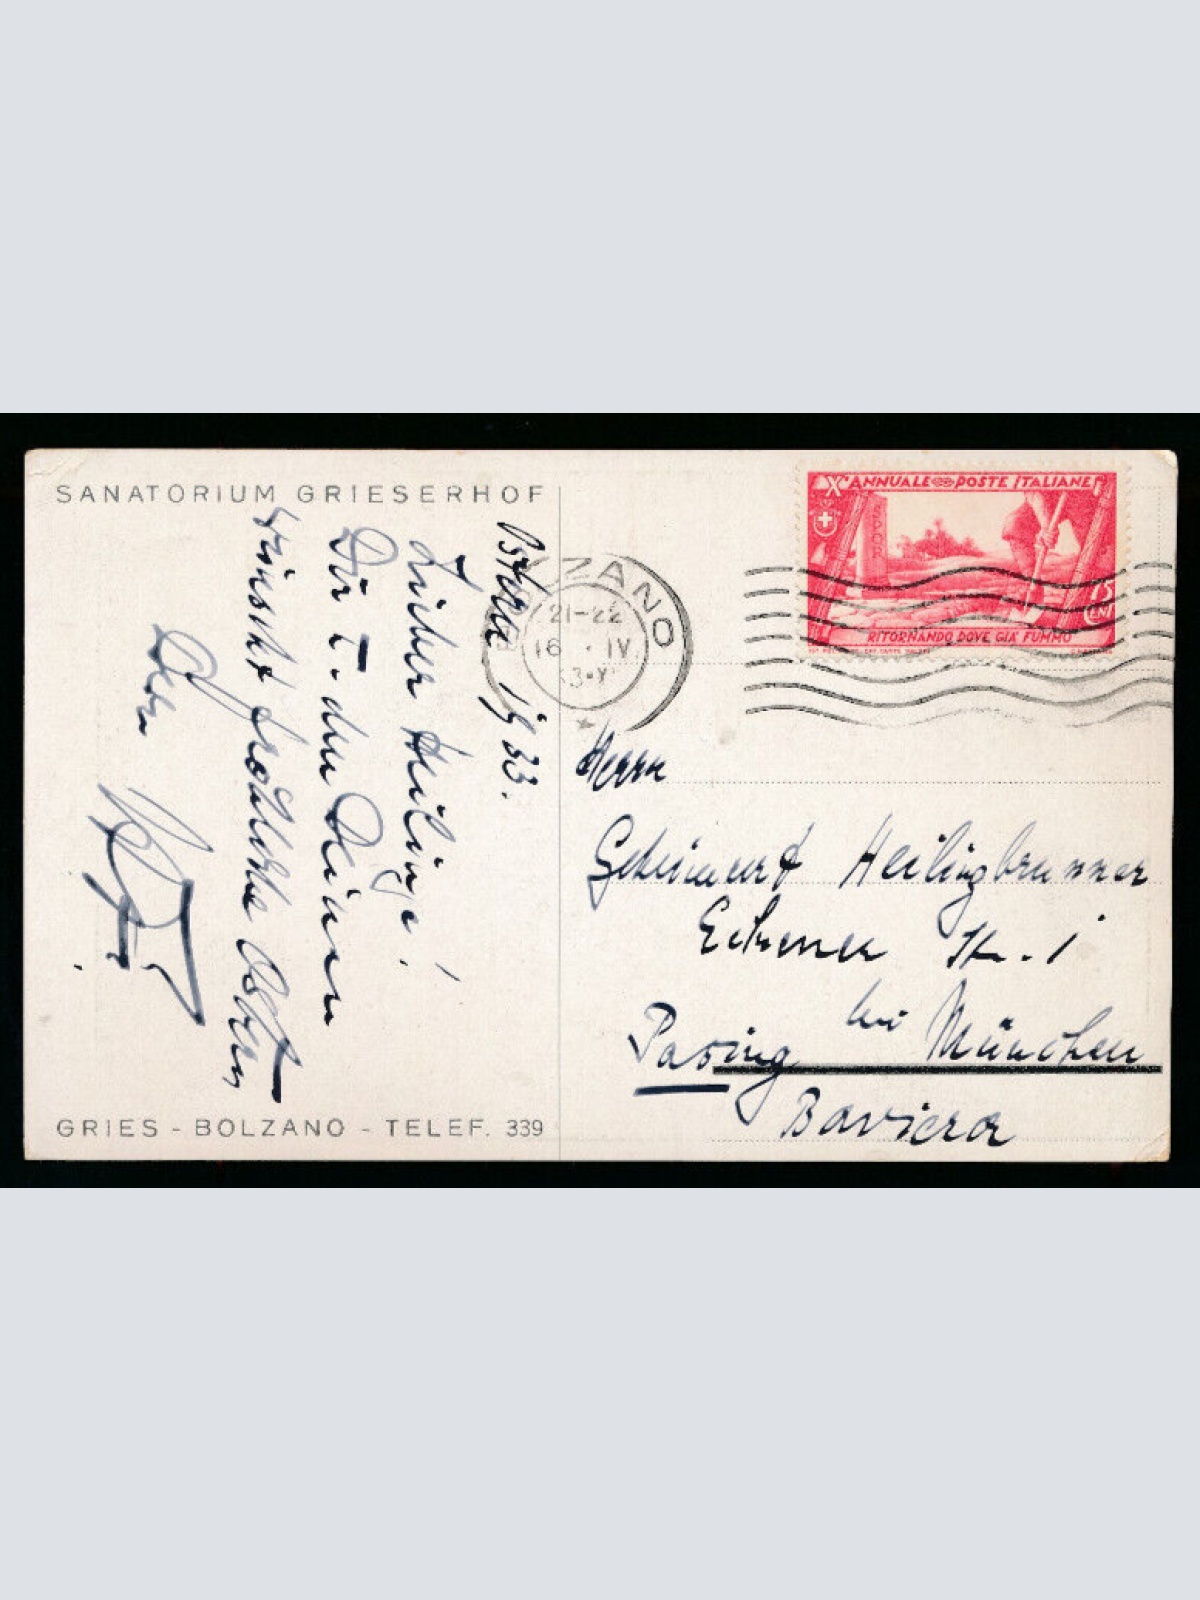 SANATORIUM GRIESERHOF
Ostern 1933.
Lieber Heilinge!
Dir u. den Deinen
wünscht fröhliche Ostern
Dein
GRIES - BOLZANO - TELEF. 339
BOLZANO
21-22
16 · IV
33-XI
X° ANNUALE POSTE ITALIANE
RITORNANDO DOVE GIA' FUMMO
75
CENT
Herrn
Geheimrat Heilingbrunner
Str. 1
Pasing bei München
Baviera